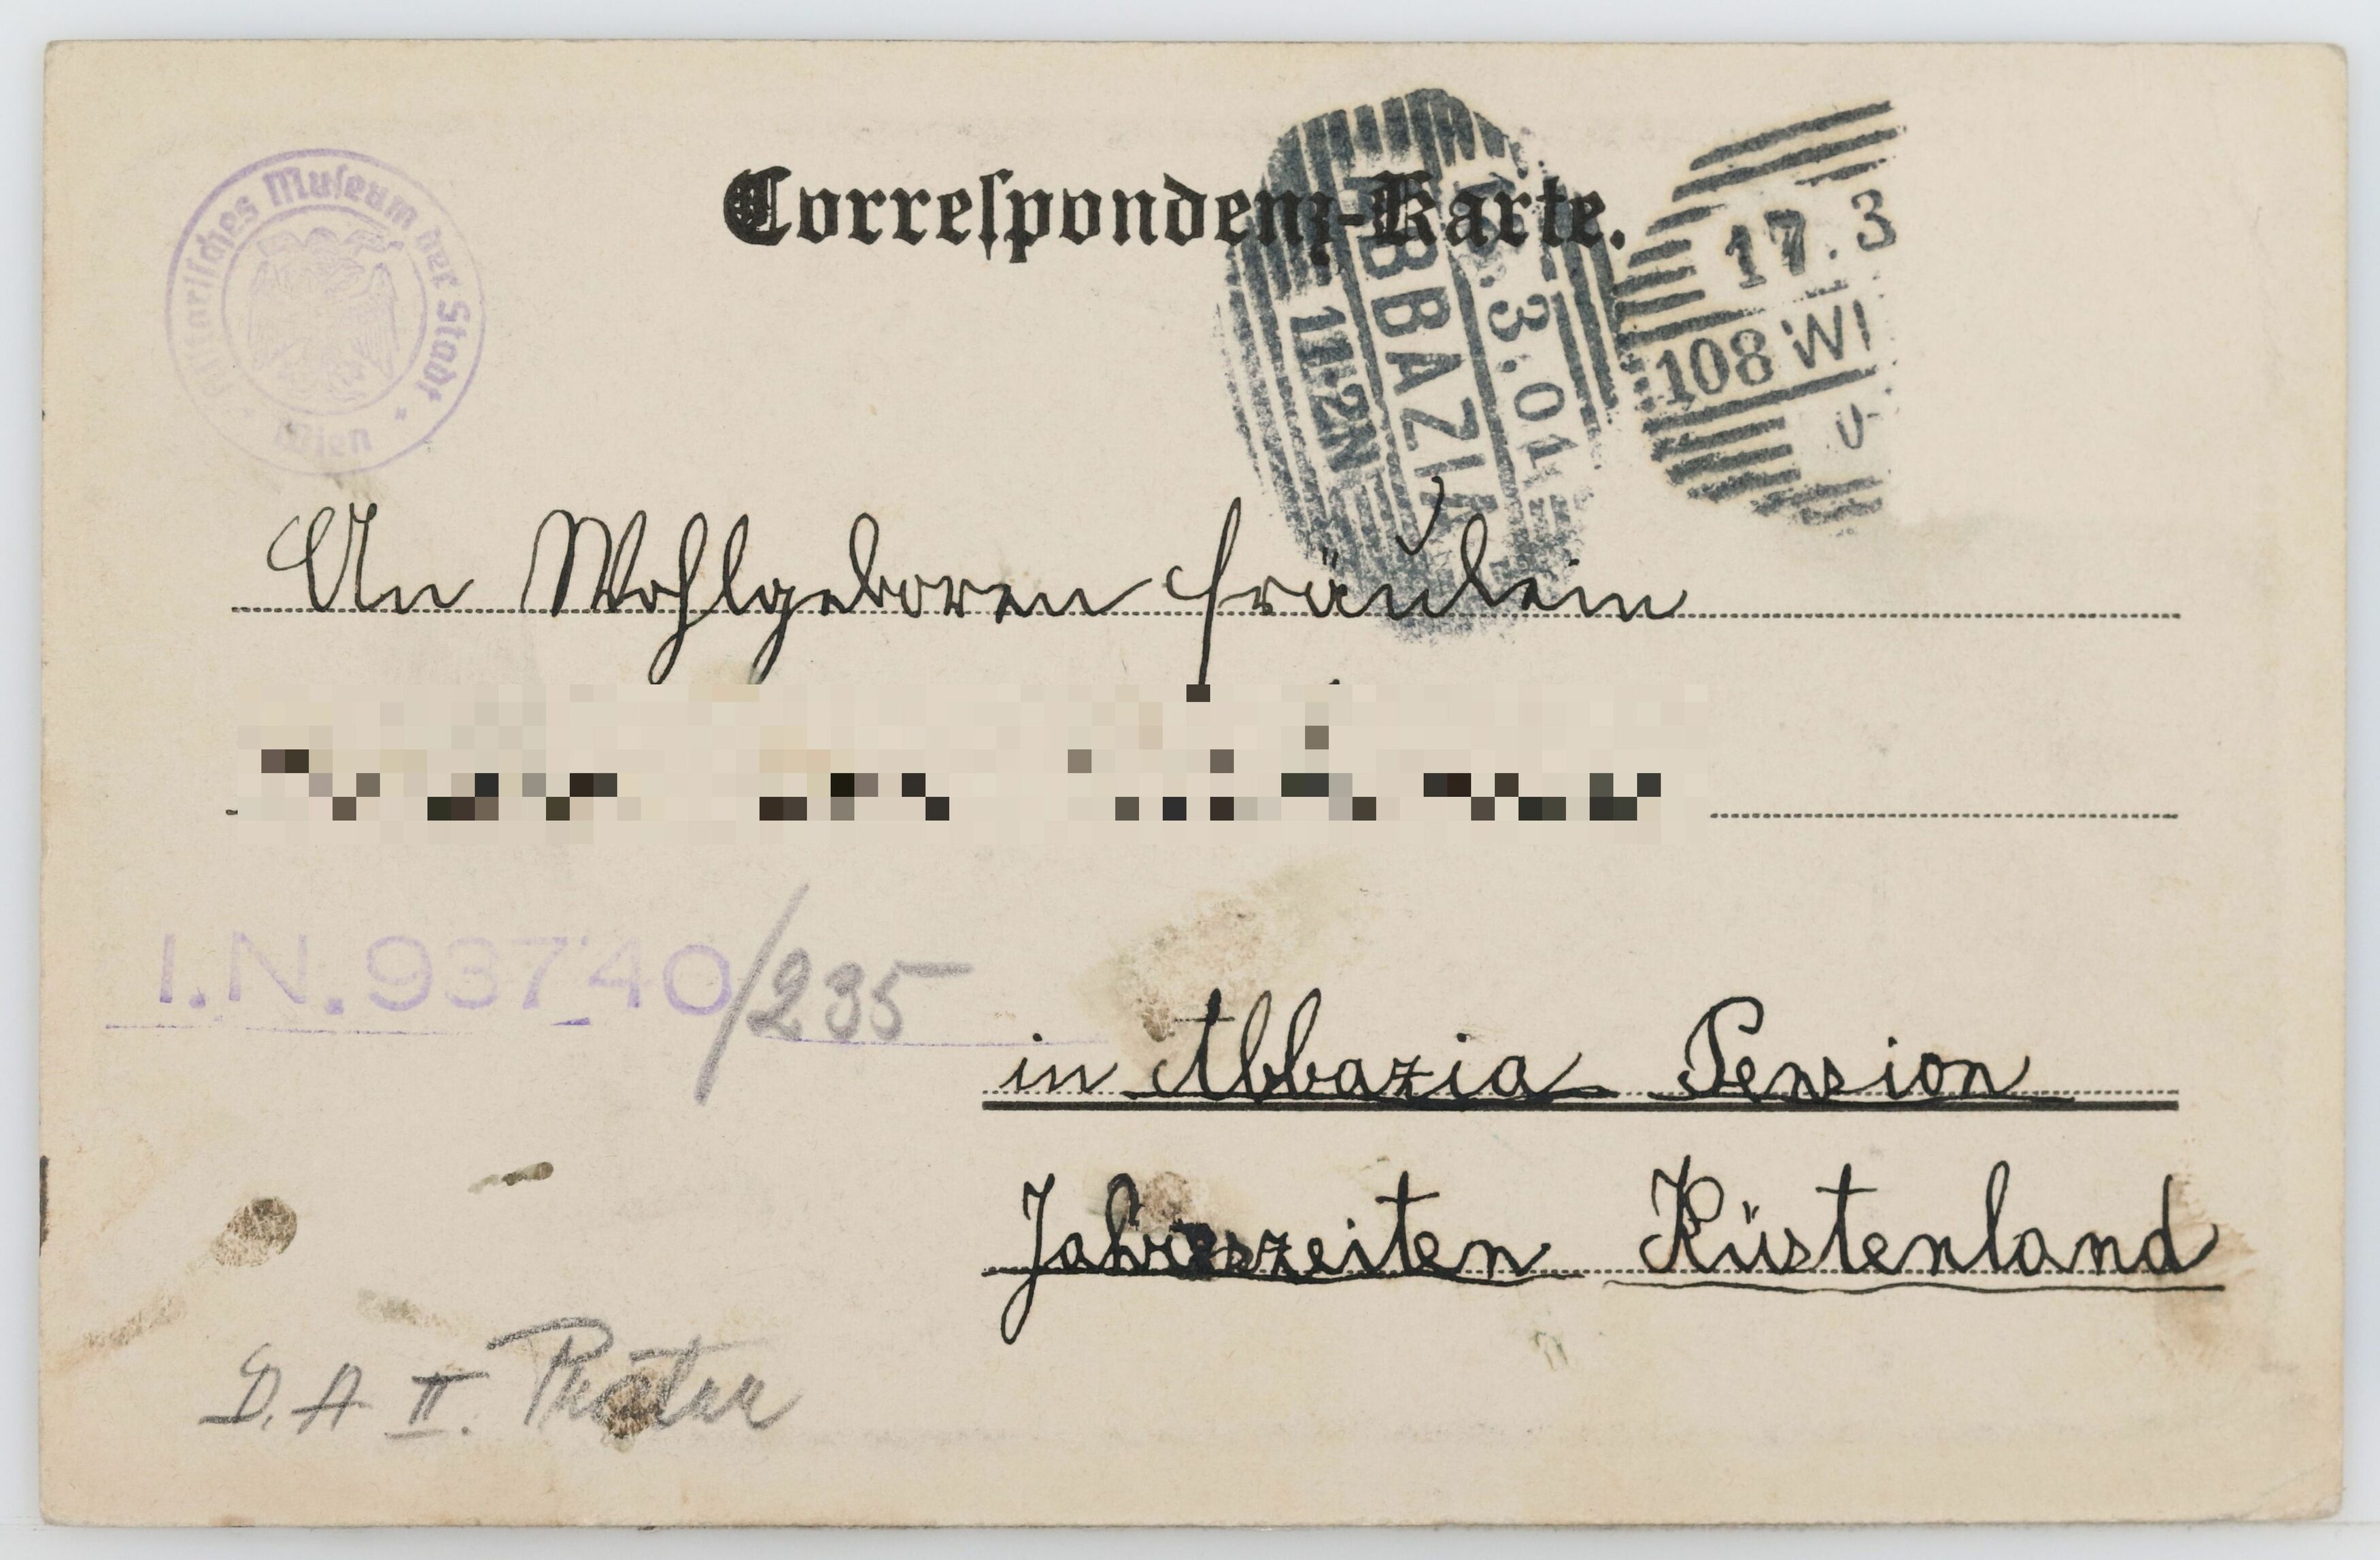 Correspondenz-Karte.
Historisches Museum der Stadt Wien
ABBAZIA
.3.01
11·2N
17.3
108 WI
An Wohlgeboren Fräulein
I.N. 93740/235
in Abbazia Pension
Jahreszeiten Küstenland
II. Prater